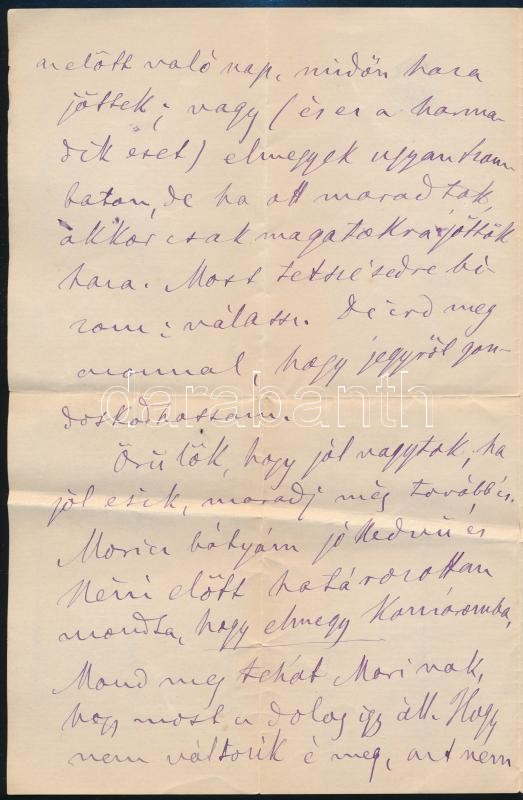 az előtt való nap, midőn haza
jöttek; vagy (és ez a harma-
dik eset) elmegyek ugyan szom-
baton, de ha ott maradtok,
akkor csak magatokra jöttök
haza. Most tetszésedre bí-
zom: válassz. De írd meg
azonnal, hogy jegyről gon-
doskodhassam.
Örülök, hogy jól vagytok, ha
jól esik, maradj még tovább is.
Moricz bátyám jó kedvű és
Néni előtt határozottan
mondta, hogy elmegy Komáromba,
Mond meg tehát Marinak,
hogy most a dolog így áll. Hogy
nem változik é meg, azt nem
darabanth